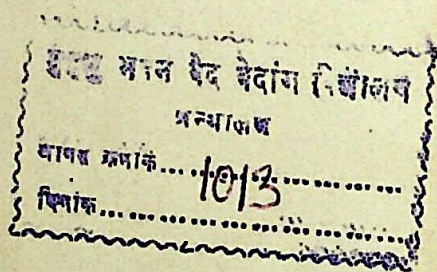 मुमुक्षु भवन वेद वेदांग विद्यालय
ग्रन्थालय
आगत क्रमांक....1013....
दिनांक....